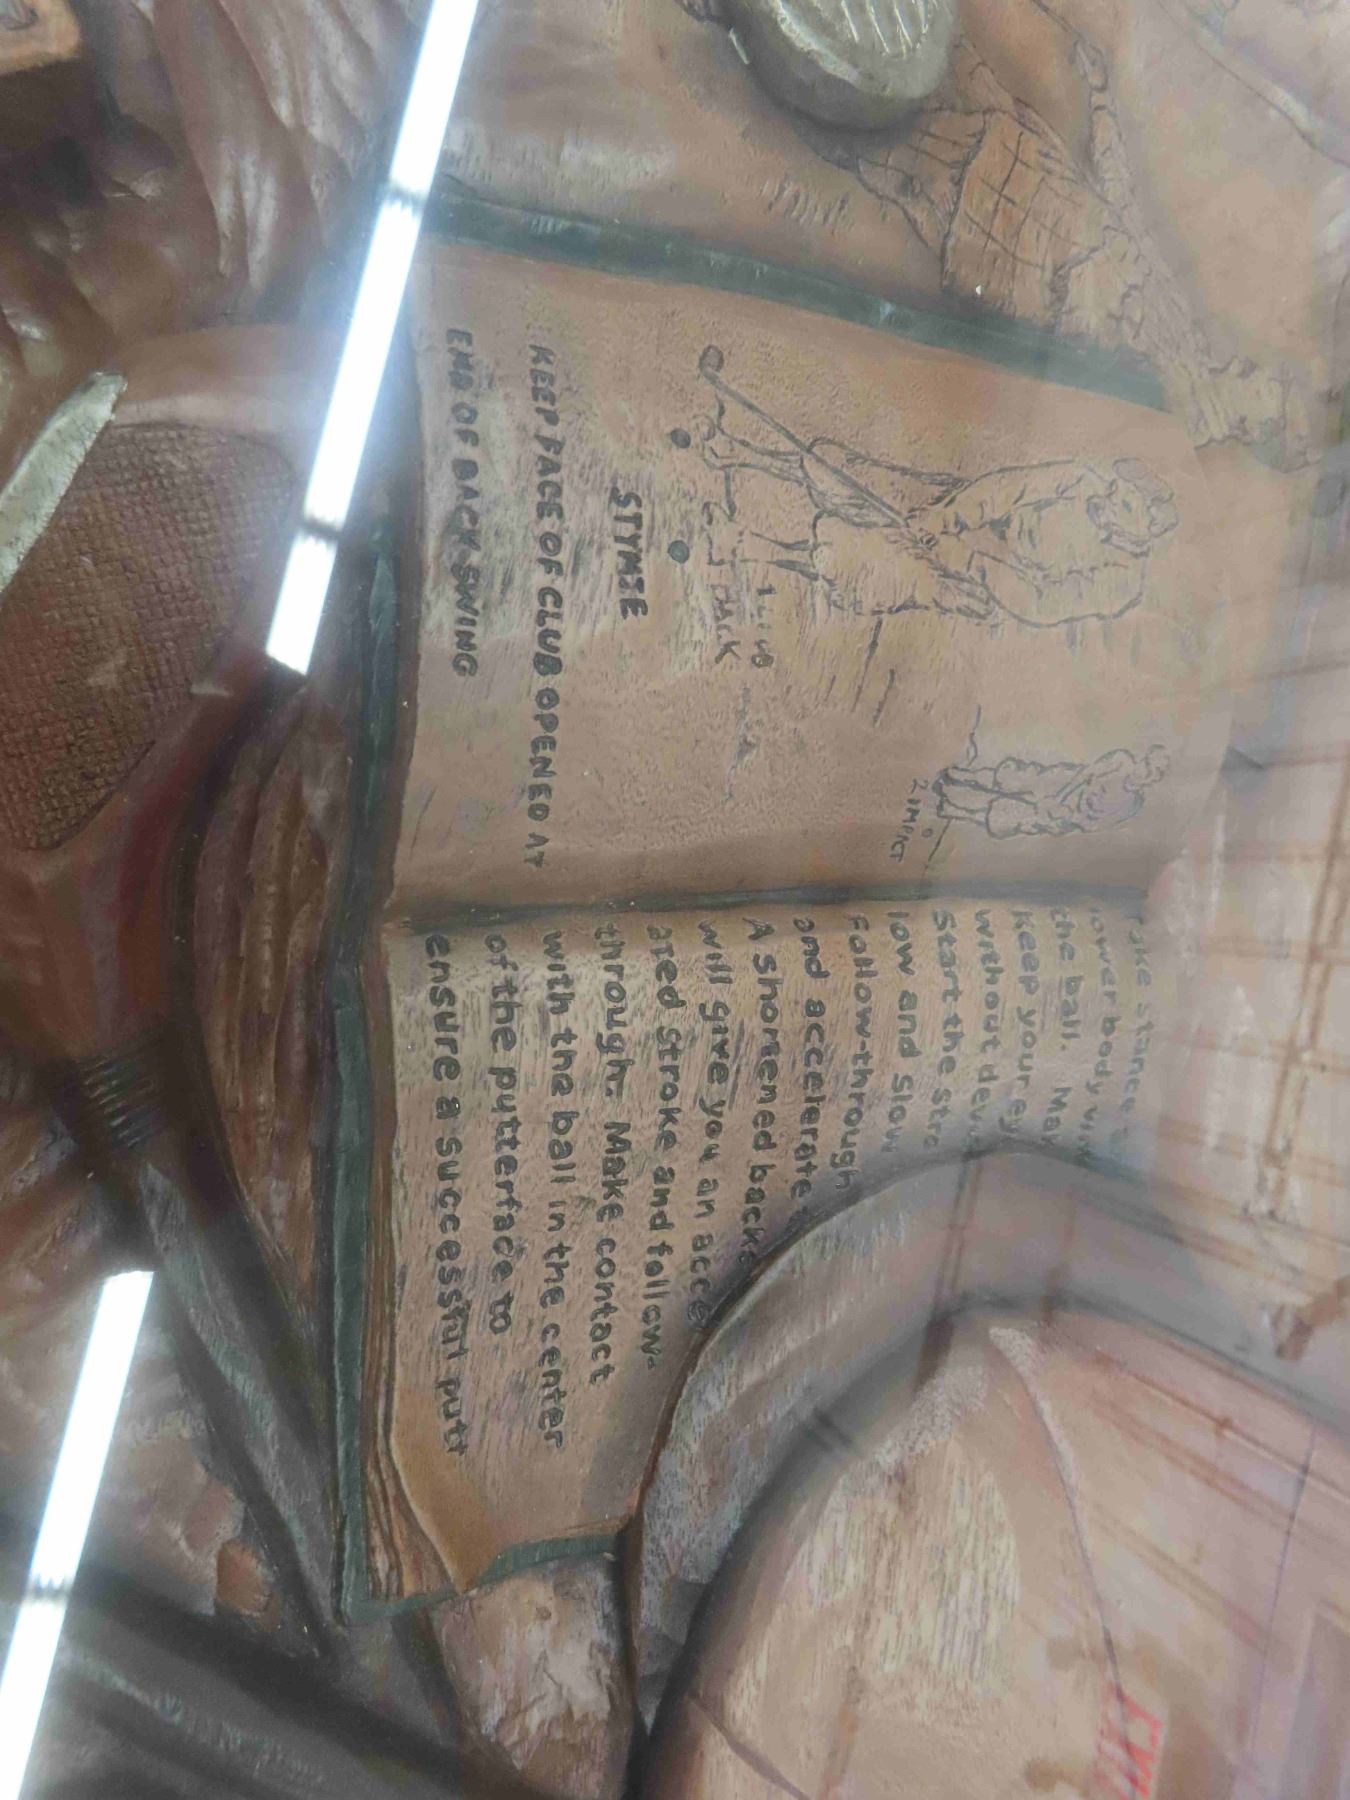 2 IMPACT
BACK
STYMIE
KEEP FACE OF CLUB OPENED AT
END OF BACK SWING
lower body
the ball.
Keep your
without
Start the
low and slow
Follow-through
and accelerate
A shortened
will give you an
ated stroke and follow-
through. Make contact
with the ball in the center
of the putterface to
ensure a successful putt